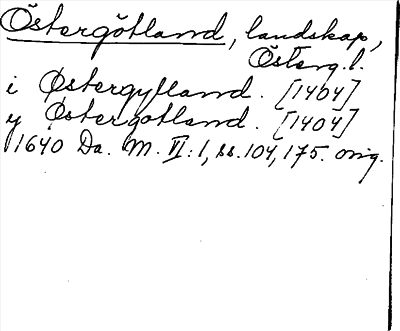 Östergötland, landskap,
Österg.l.
i Østergylland. [1404]
y Østergotland. [1404]
1640 Da. M. VI:1, ss. 104, 175. orig.